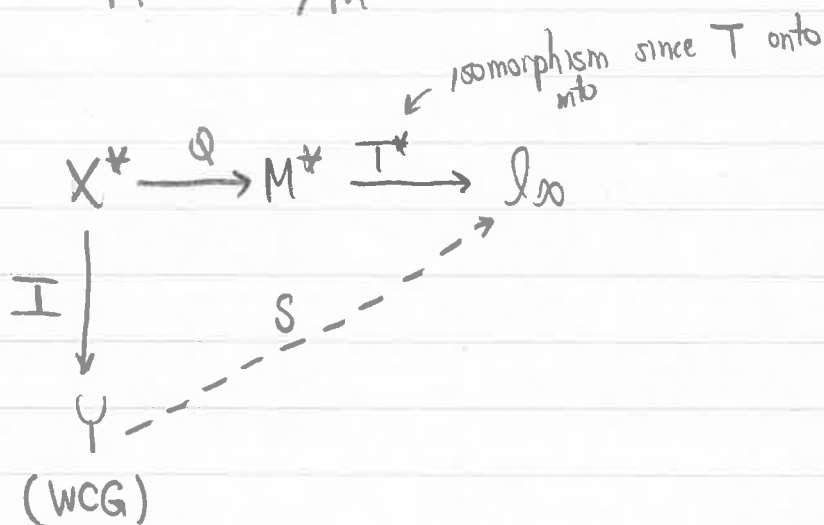 isomorphism since T onto
into
Q T*
X* M* l∞
I
S
Y
(WCG)